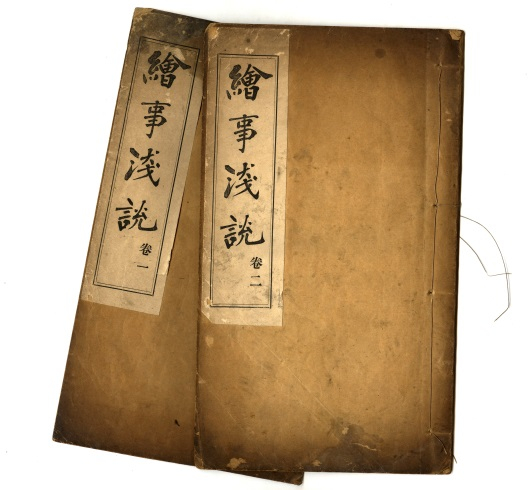 繪事淺説
卷一
繪事淺説
卷二